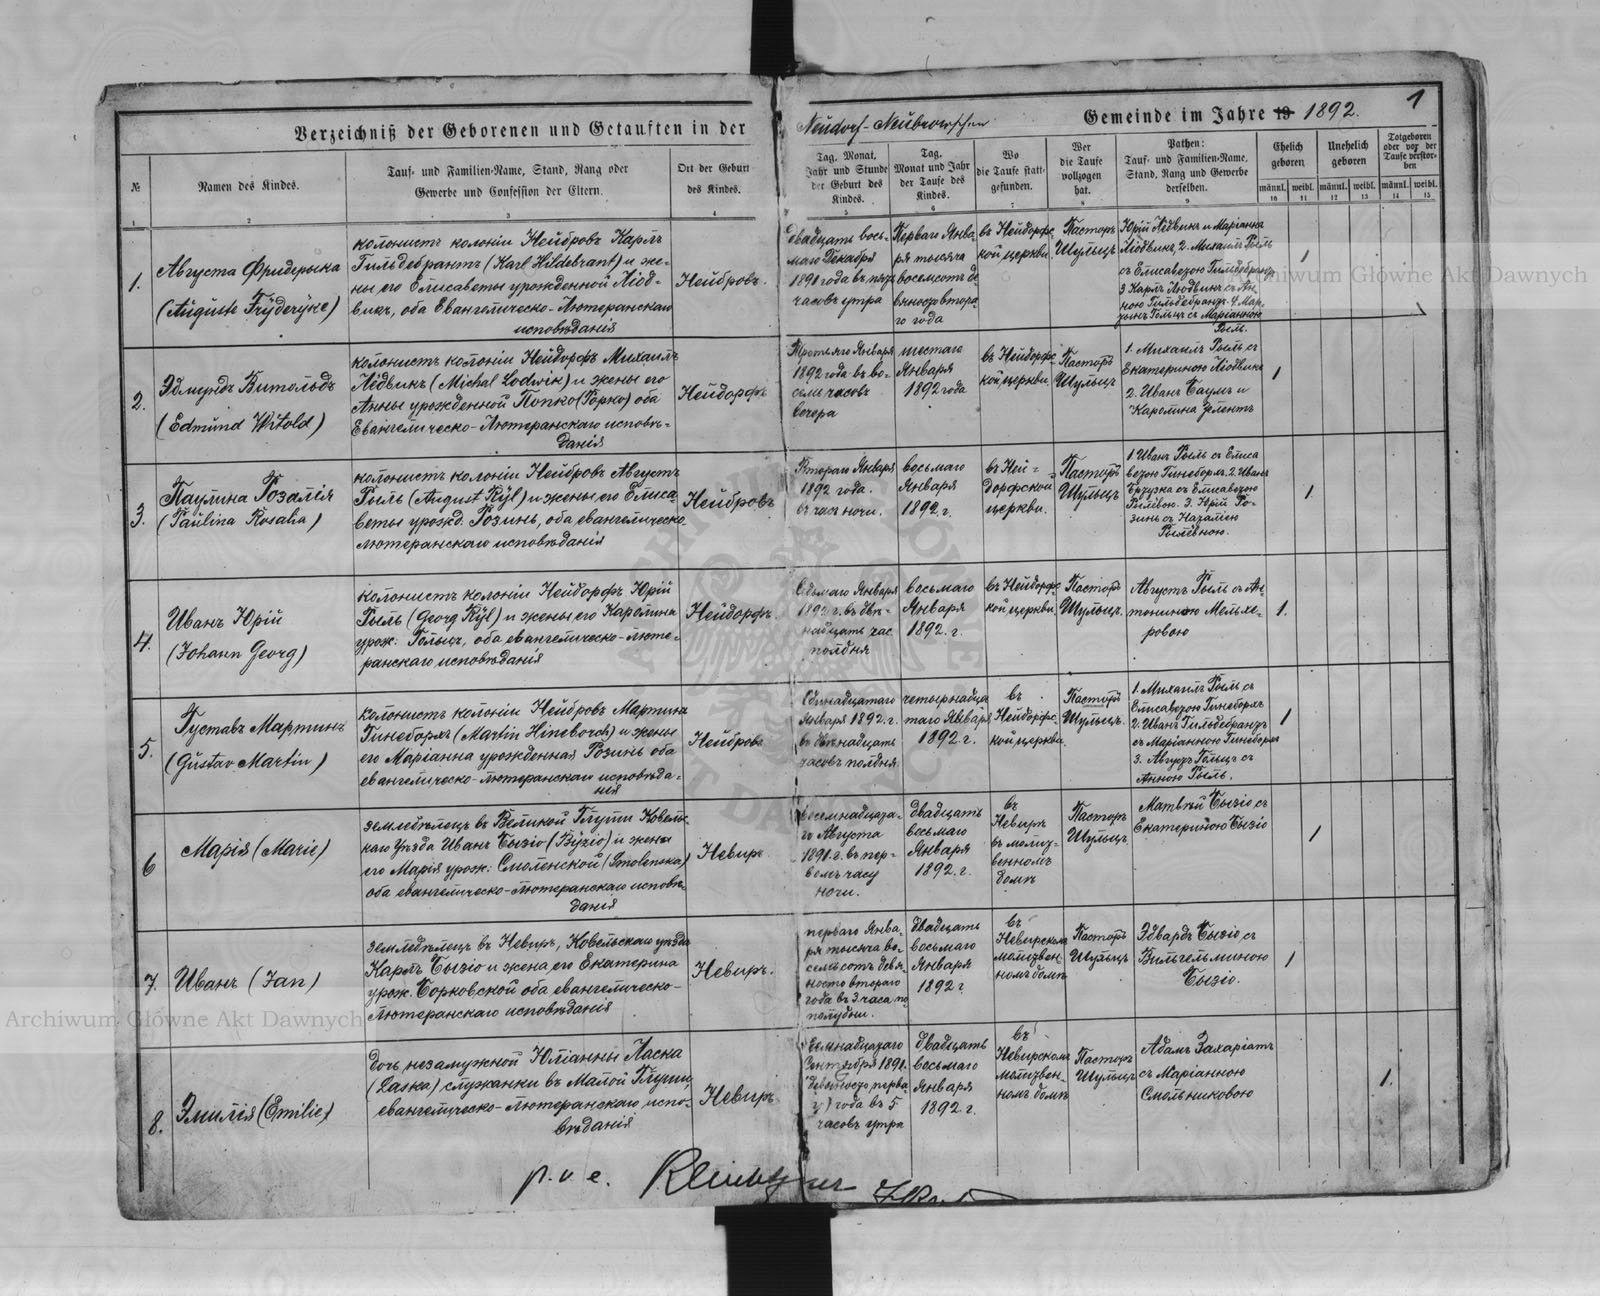 1
Verzeichniß der Geborenen und Getauften in der Neudorf-Neubrowschen Gemeinde im Jahre 19 1892.
№
Namen des Kindes.
Tauf- und Familien-Name, Stand, Rang oder
Gewerbe und Confession der Eltern.
Ort der Geburt
des Kindes.
Tag, Monat,
Jahr und Stunde
der Geburt des
Kindes.
Tag,
Monat und Jahr
der Taufe des
Kindes.
Wo
die Taufe statt-
gefunden.
Wer
die Taufe
vollzogen
hat.
Pathen:
Tauf- und Familien-Name,
Stand, Rang und Gewerbe
derselben.
Ehelich
geboren
Unehelich
geboren
Totgeboren
oder vor der
Taufe verstor-
ben
männl. weibl. männl. weibl. männl. weibl.
1 2 3 4 5 6 7 8 9 10 11 12 13 14 15
1.
Августа Фридерыка
(Auguste Fryderyke)
колонистъ колоніи Нейбровъ Карлъ
Гильдебрантъ (Karl Hildebrant) и же-
ны его Елисаветы урожденной Люд-
викъ, оба Евангелическо-Лютеранскаго
исповѣданія
Нейбровъ.
двадцать вось-
маго Декабря
1891 года въ пять
часовъ утра
Перваго Янва-
ря тысяча
восемсотъ де-
вяносто втора-
го года
въ Нейдорфс-
кой церкви.
Пасторъ
Шульцъ
Юрій Людвикъ и Маріанна
Людвикъ, 2. Михаилъ Рыль
съ Елисаветою Гильдебрандъ
3 Карлъ Людвикъ съ Ан-
ною Гильдебрандъ. 4 Мар-
тынъ Гольцъ съ Маріанною
Рыль.
1
2.
Эдмундъ Витольдъ
(Edmund Witold)
колонистъ колоніи Нейдорфъ Михаилъ
Людвикъ (Michal Lodwik) и жены его
Анны урожденной Попко (Popko) оба
Евангелическо-Лютеранскаго исповѣ-
данія
Нейдорфъ
Третьяго Января
1892 года въ во-
семь часовъ
вечера
шестаго
Января
1892 года
въ Нейдорфс-
кой церкви.
Пасторъ
Шульцъ
1. Михаилъ Рыль съ
Екатериною Людвикъ
2. Иванъ Баумъ и
Каролина
1
3.
Паулина Розалія
(Paulina Rosalia)
колонистъ колоніи Нейбровъ Августъ
Рыль (August Ryl) и жены его Елиса-
веты урожд. Розинъ, оба евангелическо-
лютеранскаго исповѣданія
Нейбровъ
Втораго Января
1892 года.
въ часъ ночи.
восьмаго
Января
1892. г.
въ Ней-
дорфской
церкви.
Пасторъ
Шульцъ
1. Иванъ Рыль съ Елиса
ветою Гинеборхъ. 2. Иванъ
съ Елисаветою
Рылевою. 3. Юрій Ро-
зинъ съ Наталіею
Рылевною.
1.
4.
Иванъ Юрій
(Johann Georg)
колонистъ колоніи Нейдорфъ Юрій
Рыль (Georg Ryl) и жены его Каролина
урож: Гольцъ, оба евангелическо-люте-
ранскаго исповѣданія
Нейдорфъ.
Седьмаго Января
1892 г. въ двѣ-
надцать час.
полдня
восьмаго
Января
1892. г.
въ Нейдорфс-
кой церкви.
Пасторъ
Шульцъ.
Августъ Рыль съ Ан-
тониною Мельхе-
ровою
1.
5.
Густавъ Мартинъ
(Gustav Martin)
колонистъ колоніи Нейбровъ Мартина
Гинеборхъ (Martin Hineborch) и жены
его Маріанна урожденная Розинъ оба
евангелическо-лютеранскаго исповѣда-
нія
Нейбровъ
Одинадцатаго
Января 1892. г.
въ двѣнадцать
часовъ полдня.
четырнадца
таго Января
1892. г.
въ
Нейдорфс-
кой церкви.
Пасторъ
Шульцъ.
1. Михаилъ Рыль съ
Елисаветою Гинеборхъ
2. Иванъ Гильдебрандъ
съ Маріанною Гинеборхъ
3. Августъ Гольцъ съ
Анною Рыль.
1
6
Марія (Marie)
земледѣлецъ въ Великой Глуши Ковельс-
каго уѣзда Иванъ Бызіо (Byzio) и жены
его Марія урож: Смоленской (Smolenska)
оба евангелическо-лютеранскаго исповѣ-
данія
Невиръ.
восемнадцата-
го Августа
1891. г. въ пер-
вомъ часу
ночи.
двадцать
восьмаго
Января
1892. г.
въ
Невиръ
въ молит-
венномъ
домѣ
Пасторъ
Шульцъ.
Матвѣй Бызіо съ
Екатериною Бызіо
1
7.
Иванъ (Jan)
земледѣлецъ въ Невиръ, Ковельскаго уѣзда
Карлъ Бызіо и жена его Екатерина
урож. Борковской оба евангелическо-
лютеранскаго исповѣданія
Невиръ.
перваго Янва-
ря тысяча во-
семьсотъ девя-
носто втораго
года въ 3 часа по
полудни.
двадцать
восьмаго
Января
1892 г.
въ
Невирскомъ
молитвен-
номъ домѣ
Пасторъ
Шульцъ
Эдвардъ Бызіо съ
Вильгельминою
Бызіо.
1
8.
Эмилія (Emilie)
дочь незамужной Юліанны Ласка
(Laska) служанки въ Малой Глуши
евангелическо-лютеранскаго испо-
вѣданія
Невиръ
Семнадцатаго
Сентября 1891.
(девяносто перва
го) года въ 5
часовъ утра
двадцать
восьмаго
Января
1892. г.
въ
Невирскомъ
молитвен-
номъ домѣ
Пасторъ
Шульцъ
Адамъ Захаріатъ
съ Маріанною
Смольниковою
1.
p. v. e.
Archiwum Główne Akt Dawnych
Archiwum Główne Akt Dawnych